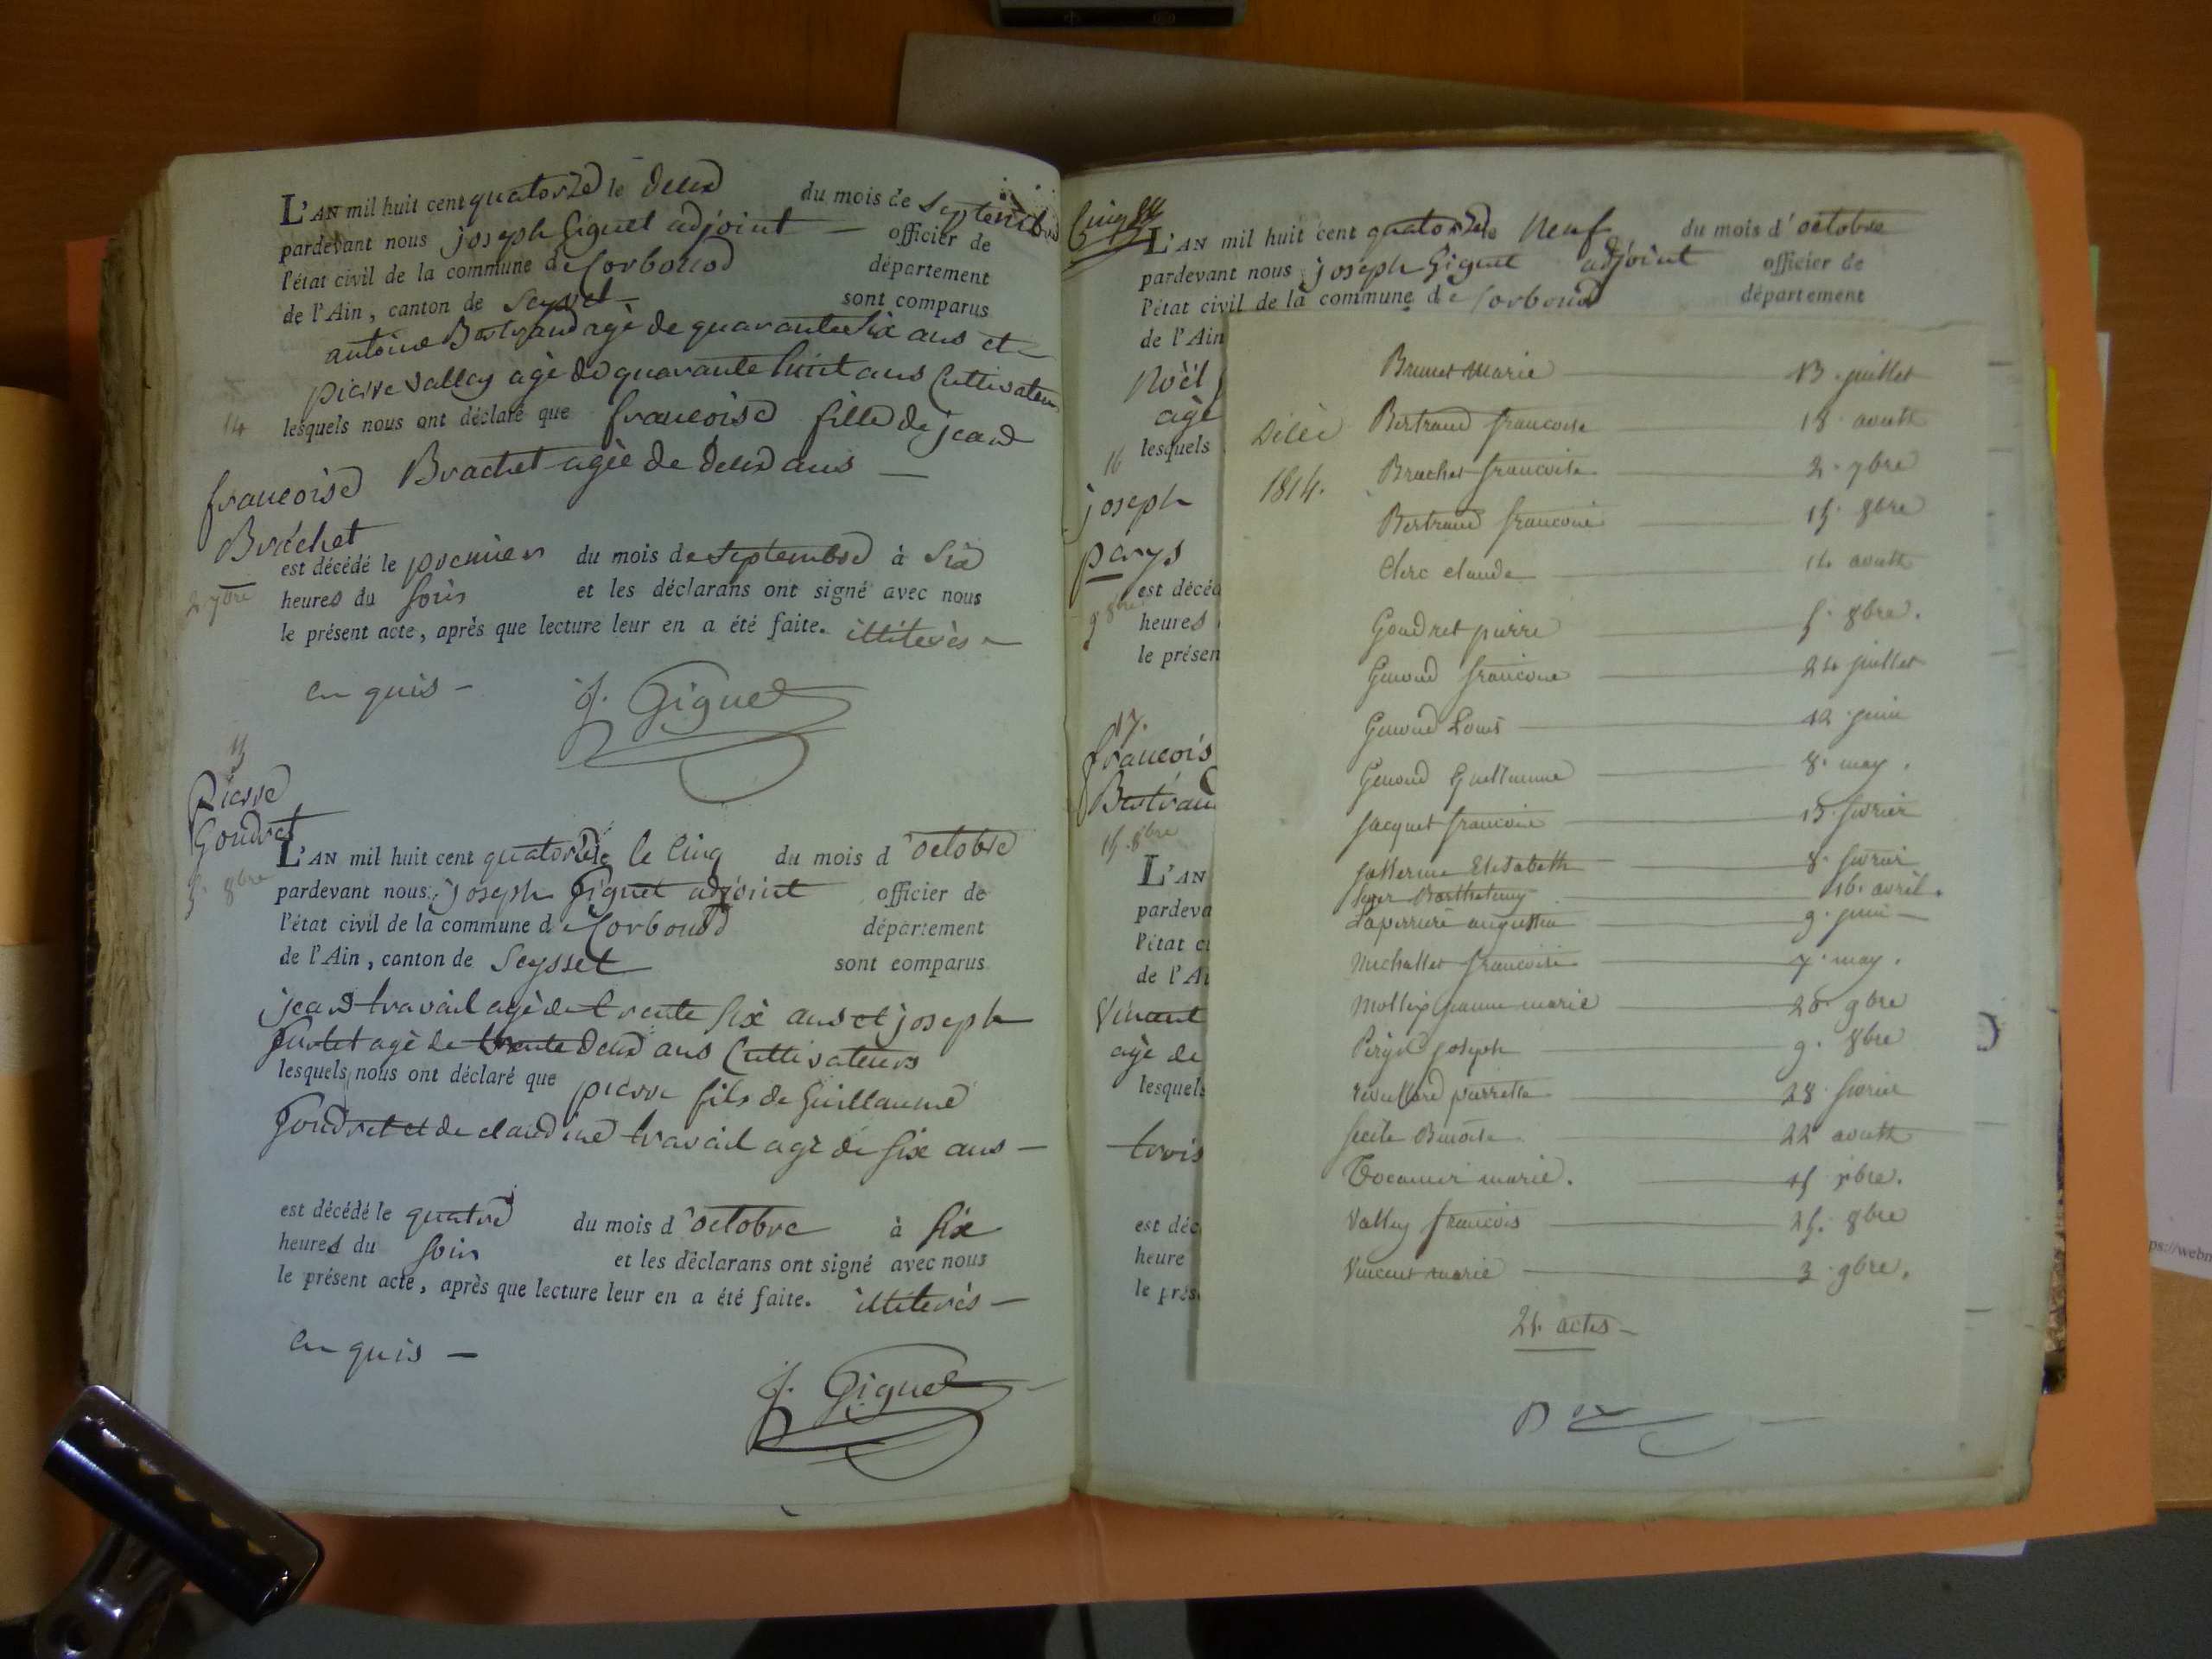 L'AN mil huit cent quatorze le deux du mois de septembre
pardevant nous joseph Giguet adjoint officier de
l'état civil de la commune de Corbonod département
de l'Ain, canton de Seyssel sont comparus
antoine Bertrand agè de quarante six ans et
pierre vallay agè de quarante huit ans Cultivateurs
14
lesquels nous ont déclaré que francoise fille de jean
francoise Brachet agèe de deux ans
Brachet
est décédé le premier du mois de septembre à six
2 7bre
heures du soir et les déclarans ont signé avec nous
le présent acte, après que lecture leur en a été faite. illiterès
en quis J. Giguet
Pierre
Goudret
5. 8bre
L'AN mil huit cent quatorze le cinq du mois d'octobre
pardevant nous joseph Giguet adjoint officier de
l'état civil de la commune de Corbonod département
de l'Ain, canton de Seyssel sont comparus
jean travail agè de trente six ans et joseph
agè de trente deux ans Cultivateurs
lesquels nous ont déclaré que pierre fils de Guillaume
Goudret et de claudine travail agè de six ans
est décédé le quatre du mois d'octobre à six
heures du soir et les déclarans ont signé avec nous
le présent acte, après que lecture leur en a été faite. illiterès
en quis
J. Giguet
L'AN mil huit cent quatorze le neuf du mois d'octobre
pardevant nous joseph Giguet adjoint officier de
l'état civil de la commune de Corbonod département
de l'Ain
Noël
agè
16
lesquels
joseph
perys
est décéd
9 8bre
heures
le présen
17.
francois
Bertran
15. 8bre
L'AN
pardeva
l'état ci
de l'Ai
Vincent
agè de
lesquels
trois
est déc
heure
le prés
Brunet marie 13 juillet
Décés
Bertrand francoise 18 aoutt
1814.
Brachet francoise 2. 7bre
Bertrand francois 15. 8bre
Clerc claude 14 aoutt
Goudret pierre 5. 8bre.
Genoud francoise 24 juillet
Genoud Louis 12 juin
Genoud Guillaume 8. may.
Jacquet francoise 13 fevrier
Elisabeth 8. fevrier
Barthelemy 16. avril.
Laperriere augustin 9. juin
Michallet francoise 7. may.
Mollex jeanne marie 28 9bre
joseph 9. 8bre
pierrette 28 fevrier
Benoite 22 aoutt
marie.
Vallay francois 25. 8bre
Vincent marie 3 9bre.
21 actes
ps://webm